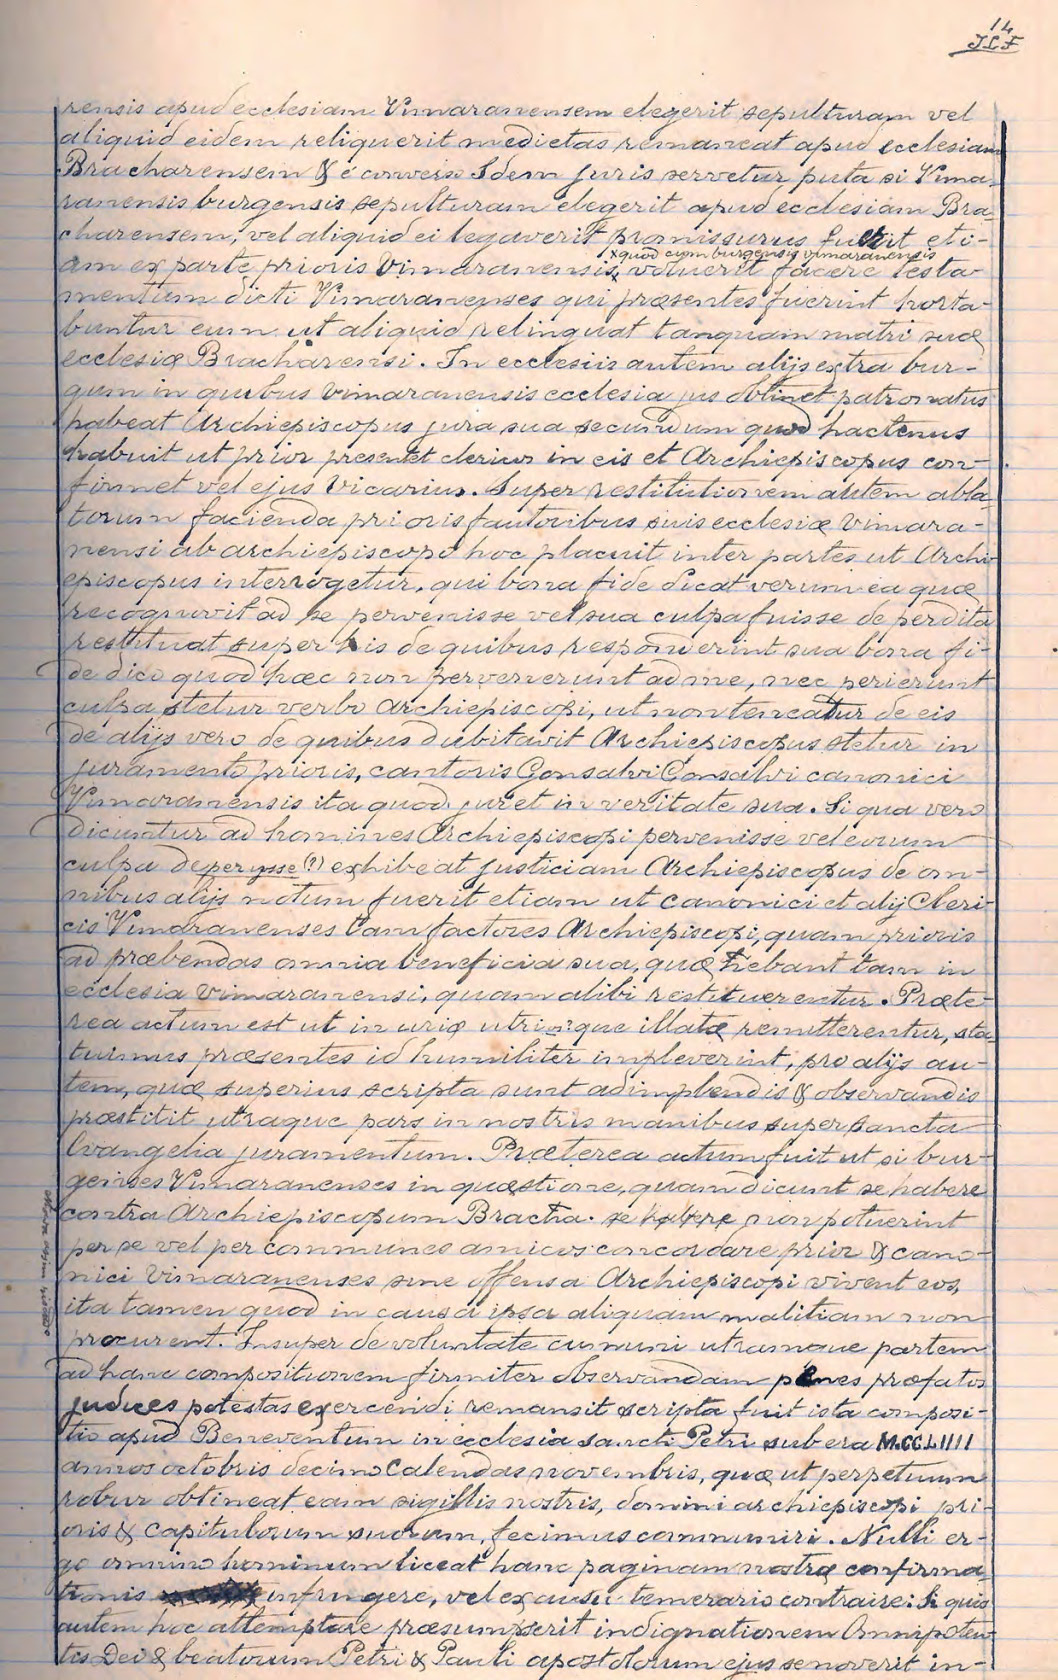 14
J.L.F
rensis apud ecclesiam Vimaranensem elegerit sepulturam vel
aliquid eidem reliquerit medietas remaneat apud ecclesiam
Bracharensem & é converso Idem juris servetur puta si Vima-
ranensis burgensis sepulturam elegerit apud ecclesiam Bra-
charensem, vel aliquid ei legaverit promissurus fuerit eti-
x quod cum burgensis vimaranensis
am ex parte prioris Vimaranensis, x voluerit facere testa-
mentum dicti Vimaranenses qui præsentes fuerint horta-
buntur eum ut aliquid relinquat tanquam matri suæ
ecclesiæ Bracharensi. In ecclesiis autem alijs extra bur-
gum in quibus Vimaranensis ecclesia jus obtinet patronatus
habeat Archiepiscopus jura sua secundum quod hactenus
habuit ut prior presentet clericos in eis et Archiepiscopus con-
firmet vel ejus Vicarius. Super restitutionem autem abla-
torum facienda prioris fautoribus suis ecclesiæ Vimara-
nensi ab archiepiscopo hoc placuit inter partes ut Archi-
episcopus interrogetur, qui bona fide dicat verum ea quæ
recognovit ad se pervenisse vel sua culpa fuisse deperdita
restituat super his de quibus responderint sua bona fi-
de dico quod hæc non pervenerunt ad me, nec perierunt
culpa stetur verbo archiepiscopi, ut non teneatur de eis
de alijs vero de quibus dubitavit Archiepiscopus stetur in
juramento prioris, cantoris Gonsalvi Gonsalvi canonici
Vimaranensis ita quod juret in veritate sua. Si qua vero
dicuntur ad homines Archiepiscopi pervenisse vel eorum
culpa deperysse (?) exhibeat justiciam Archiepiscopus de om-
nibus alijs notum fuerit etiam ut canonici et alij Cleri-
cis Vimaranenses tam factores Archiepiscopi, quam prioris
ad præbendas omnia beneficia sua, quæ habebant tam in
ecclesia vimaranensi, quam alibi restituerentur. Præte-
rea actum est ut in uriæ utrinque illatæ remitterentur, sta-
tuimus præsentes id humiliter impleverint, pro alijs au-
tem, quæ superius scripta sunt adimplendis & observandis
præstitit utraque pars in nostris manibus super sancta
Evangelia juramentum. Præterea actum fuit ut si bur-
genses Vimaranenses in quæstione, quam dicunt se habere
contra Archiepiscopum Bracha. se habere non potuerint
per se vel per communes amicos concordare prior & cano-
nici Vimaranenses sine offensa Archiepiscopi vivent eos,
ita tamen quod in causa ipsa aliquam malitiam non
procurent. Insuper de voluntate cumuni utramque partem
ad hanc compositionem firmiter observandam penes præfatos
judices potestas exercendi remansit scripta fuit ista composi-
tio apud Beneventum in ecclesia sancti Petri sub era M.CC.LIIII
annos octobris decimo Calendas novembris, quæ ut perpetuum
robur obtineat eam sigillis nostris, domini archiepiscopi pri-
oris & capitulorum suorum, fecimus communiri. Nulli er-
go omnino hominum liceat hanc paginam nostræ confirma-
tionis infringere, vel ex ausu temerario contraire: Si quis
autem hoc attemptare præsumpserit indignationem Omnipoten-
tis Dei & beatorum Petri & Pauli apostolorum ejus se noverit in-